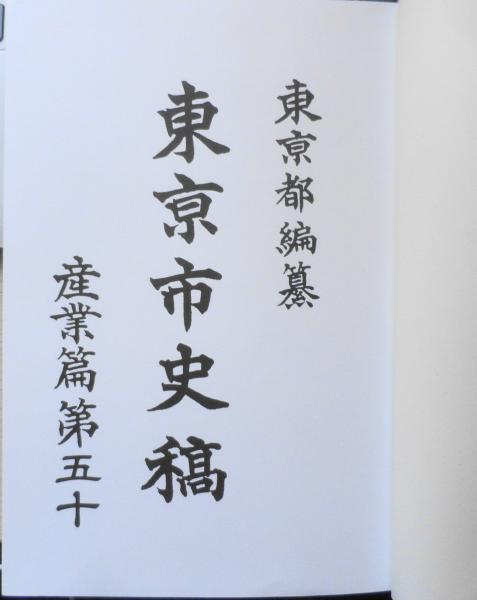 東亰都編纂
東亰市史稿
産業篇第五十